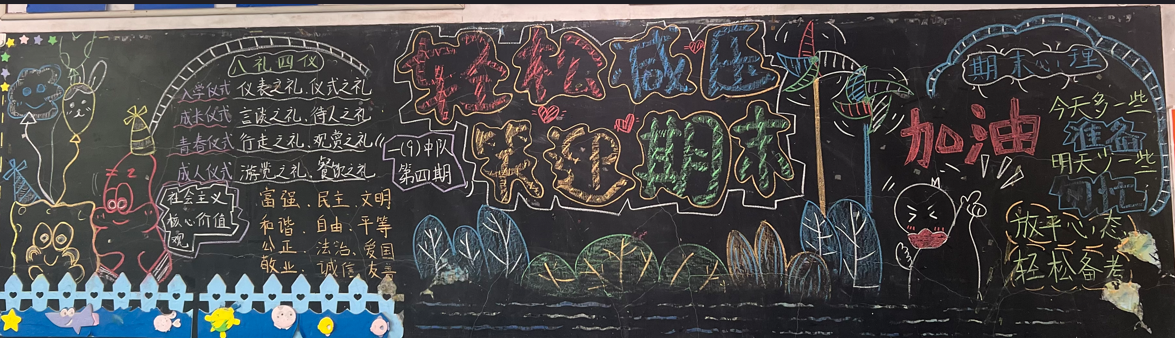 八礼四仪
入学仪式 仪表之礼、仪式之礼
成长仪式 言谈之礼、待人之礼
青春仪式 行走之礼、观赏之礼
成人仪式 游览之礼、餐饮之礼
社会主义
核心价值
观
富强、民主、文明
和谐、自由、平等
公正、法治、爱国
敬业、诚信、友善
轻松减压
笑迎期末
一(9)中队
第四期
期末心理
加油
今天多一些
准备
明天少一些
匆忙
放平心态
轻松备考